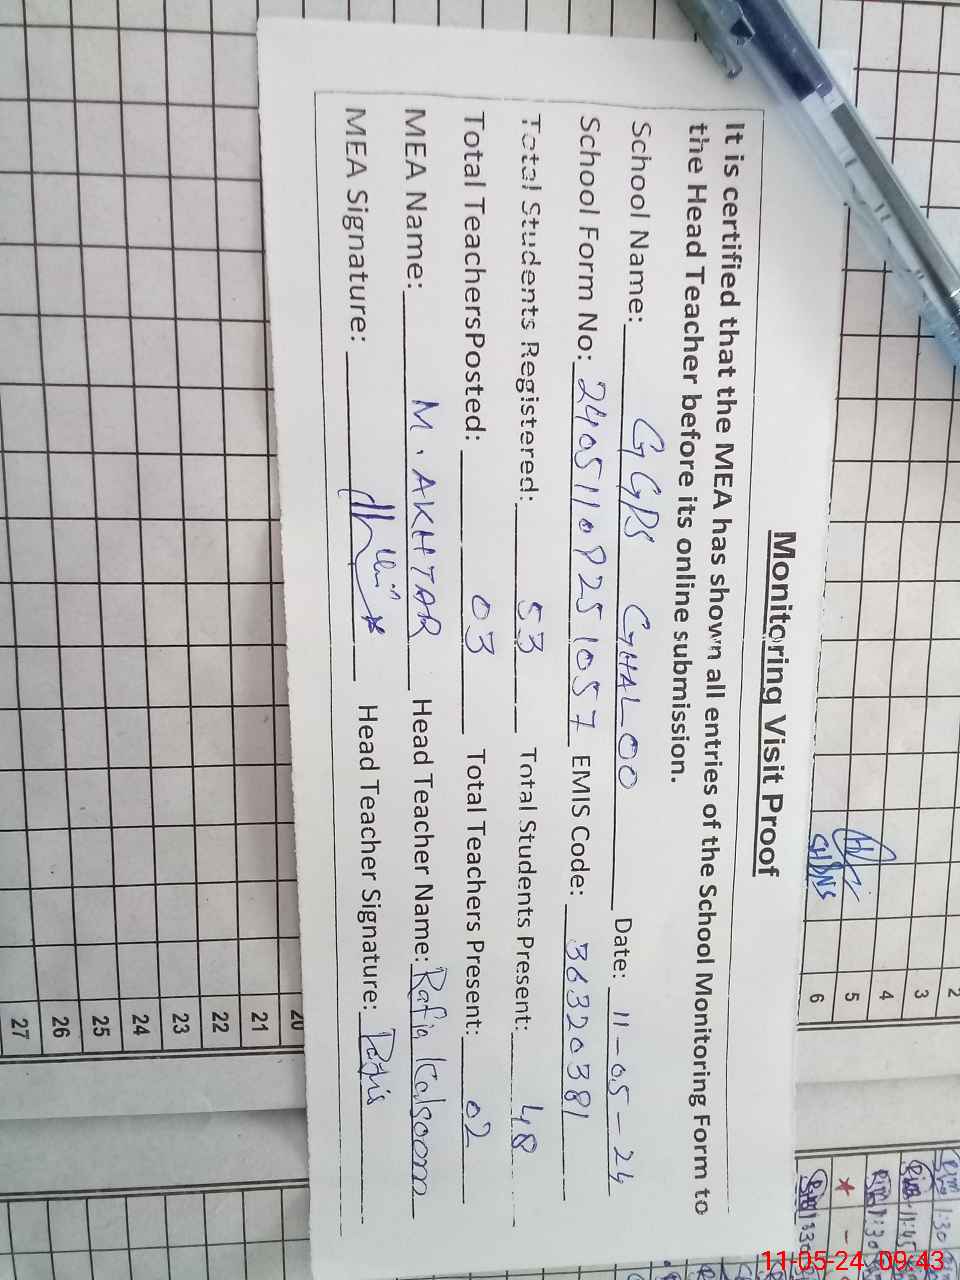 Monitoring Visit Proof
It is certified that the MEA has shown all entries of the School Monitoring Form to
the Head Teacher before its online submission.
School Name: GGPS GHALOO Date: 11-05-24
School Form No: 24051108251057 EMIS Code: 36320381
Total Students Registered: 53 Total Students Present: 48
Total TeachersPosted: 03 Total Teachers Present: 02
MEA Name: M. AKHTAR Head Teacher Name: Rafia Kalsoom
MEA Signature: Head Teacher Signature: Rafia
2
3
4
5
6
20
21
22
23
24
25
26
27
1:30
11:45
1:30
1:30
11-05-24 09:43